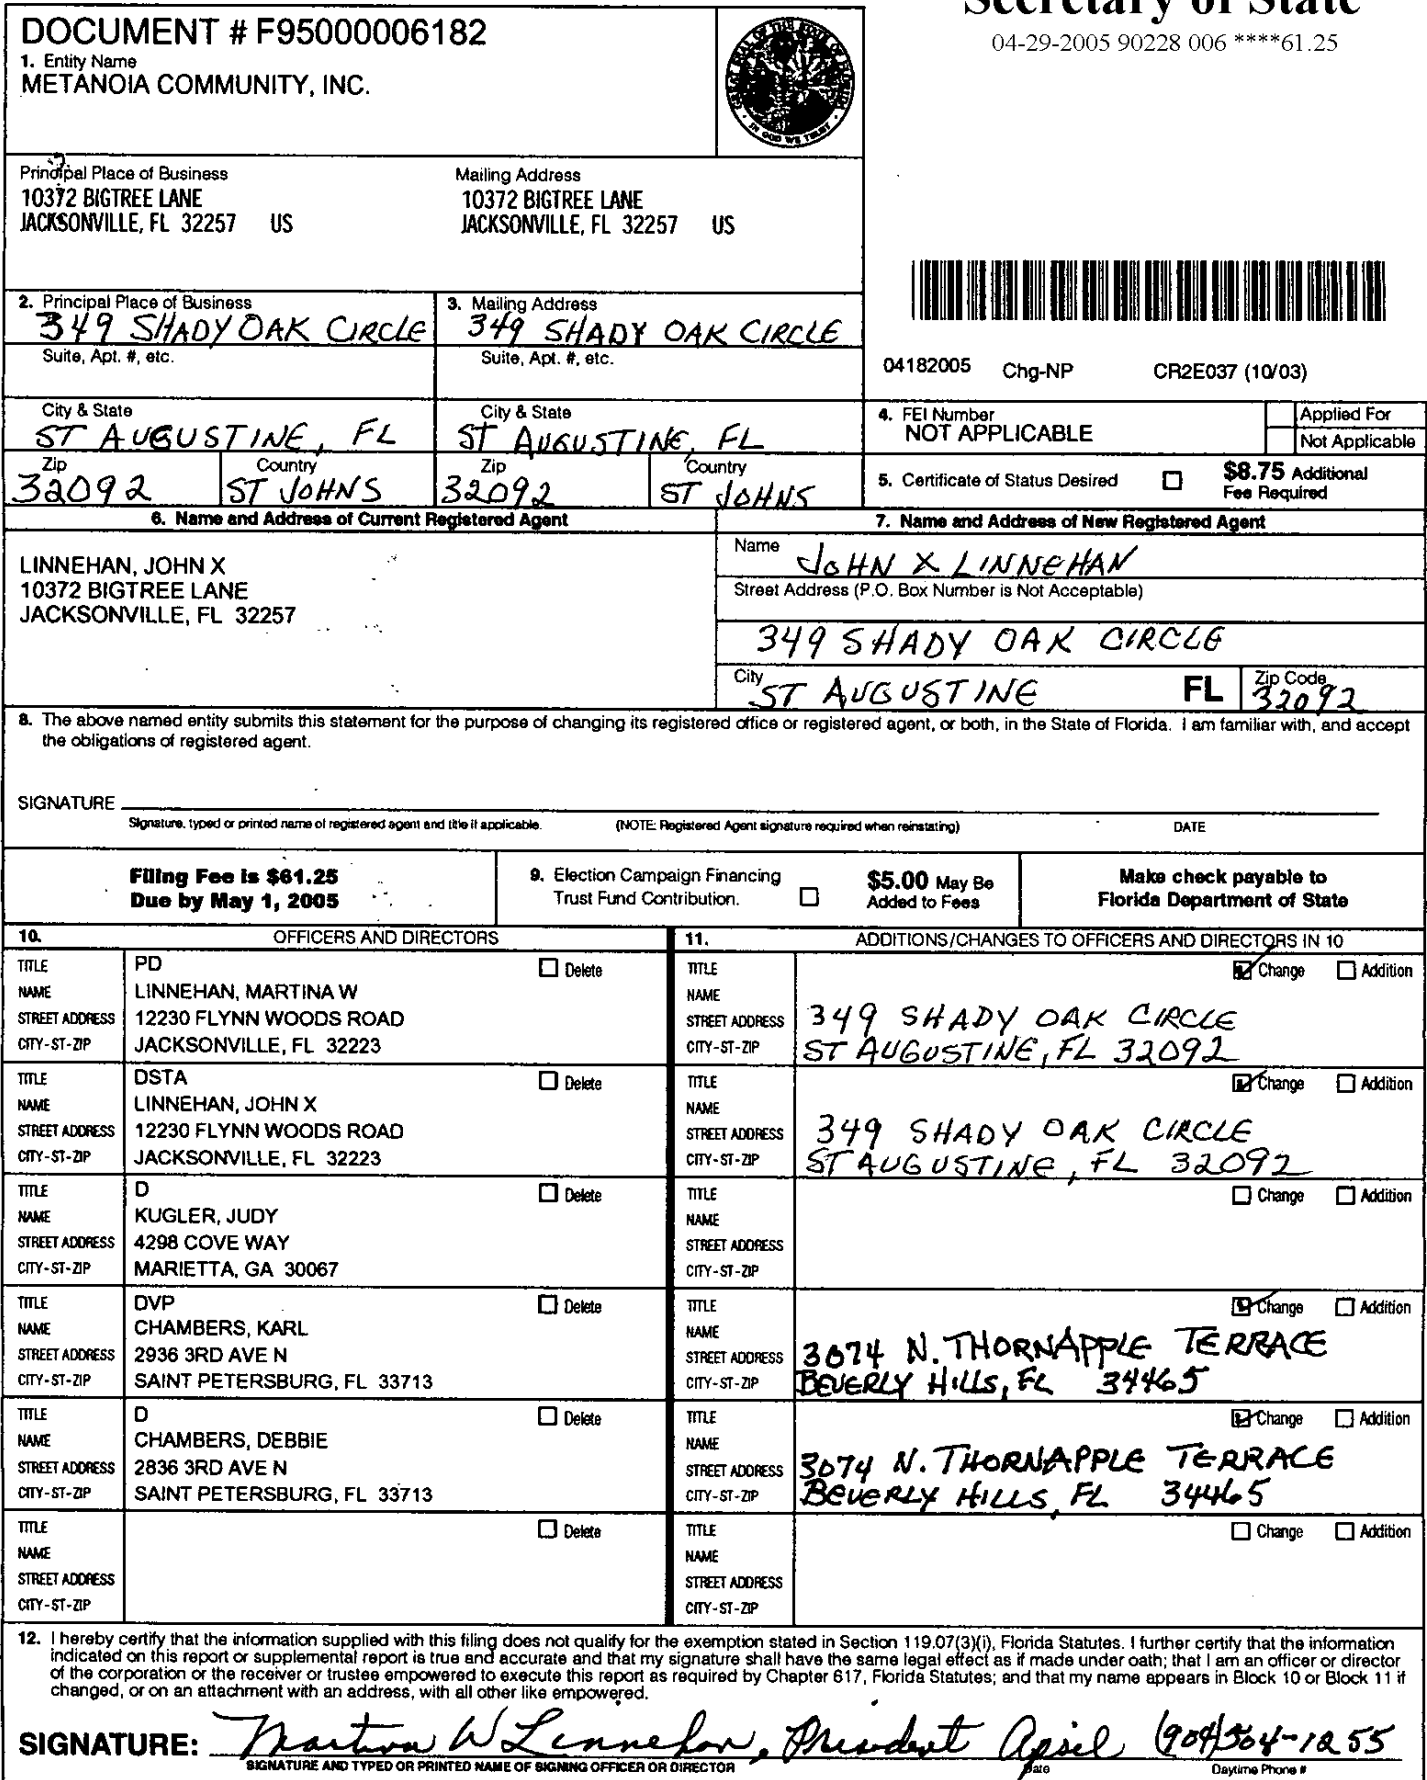 Secretary of State
04-29-2005 90228 006 ****61.25
DOCUMENT # F95000006182
1. Entity Name
METANOIA COMMUNITY, INC.
Principal Place of Business
10372 BIGTREE LANE
JACKSONVILLE, FL 32257 US
Mailing Address
10372 BIGTREE LANE
JACKSONVILLE, FL 32257 US
2. Principal Place of Business
349 SHADY OAK CIRCLE
Suite, Apt. #, etc.
City & State
ST AUGUSTINE, FL
Zip Country
32092 ST JOHNS
3. Mailing Address
349 SHADY OAK CIRCLE
Suite, Apt. #, etc.
City & State
ST AUGUSTINE, FL
Zip Country
32092 ST JOHNS
04182005 Chg-NP CR2E037 (10/03)
4. FEI Number
NOT APPLICABLE
Applied For
Not Applicable
5. Certificate of Status Desired
$8.75 Additional
Fee Required
6. Name and Address of Current Registered Agent
LINNEHAN, JOHN X
10372 BIGTREE LANE
JACKSONVILLE, FL 32257
7. Name and Address of New Registered Agent
Name JOHN X LINNEHAN
Street Address (P.O. Box Number is Not Acceptable)
349 SHADY OAK CIRCLE
City ST AUGUSTINE FL Zip Code 32092
8. The above named entity submits this statement for the purpose of changing its registered office or registered agent, or both, in the State of Florida. I am familiar with, and accept
the obligations of registered agent.
SIGNATURE
Signature, typed or printed name of registered agent and title if applicable. (NOTE: Registered Agent signature required when reinstating) DATE
Filing Fee is $61.25
Due by May 1, 2005
9. Election Campaign Financing
Trust Fund Contribution.
$5.00 May Be
Added to Fees
Make check payable to
Florida Department of State
10. OFFICERS AND DIRECTORS
11. ADDITIONS/CHANGES TO OFFICERS AND DIRECTORS IN 10
TITLE PD Delete
NAME LINNEHAN, MARTINA W
STREET ADDRESS 12230 FLYNN WOODS ROAD
CITY-ST-ZIP JACKSONVILLE, FL 32223
TITLE Change Addition
NAME
STREET ADDRESS 349 SHADY OAK CIRCLE
CITY-ST-ZIP ST AUGUSTINE, FL 32092
TITLE DSTA Delete
NAME LINNEHAN, JOHN X
STREET ADDRESS 12230 FLYNN WOODS ROAD
CITY-ST-ZIP JACKSONVILLE, FL 32223
TITLE Change Addition
NAME
STREET ADDRESS 349 SHADY OAK CIRCLE
CITY-ST-ZIP ST AUGUSTINE, FL 32092
TITLE D Delete
NAME KUGLER, JUDY
STREET ADDRESS 4298 COVE WAY
CITY-ST-ZIP MARIETTA, GA 30067
TITLE Change Addition
NAME
STREET ADDRESS
CITY-ST-ZIP
TITLE DVP Delete
NAME CHAMBERS, KARL
STREET ADDRESS 2936 3RD AVE N
CITY-ST-ZIP SAINT PETERSBURG, FL 33713
TITLE Change Addition
NAME
STREET ADDRESS 3074 N. THORNAPPLE TERRACE
CITY-ST-ZIP BEVERLY HILLS, FL 34465
TITLE D Delete
NAME CHAMBERS, DEBBIE
STREET ADDRESS 2836 3RD AVE N
CITY-ST-ZIP SAINT PETERSBURG, FL 33713
TITLE Change Addition
NAME
STREET ADDRESS 3074 N. THORNAPPLE TERRACE
CITY-ST-ZIP BEVERLY HILLS, FL 34465
TITLE Delete
NAME
STREET ADDRESS
CITY-ST-ZIP
TITLE Change Addition
NAME
STREET ADDRESS
CITY-ST-ZIP
12. I hereby certify that the information supplied with this filing does not qualify for the exemption stated in Section 119.07(3)(i), Florida Statutes. I further certify that the information
indicated on this report or supplemental report is true and accurate and that my signature shall have the same legal effect as if made under oath; that I am an officer or director
of the corporation or the receiver or trustee empowered to execute this report as required by Chapter 617, Florida Statutes; and that my name appears in Block 10 or Block 11 if
changed, or on an attachment with an address, with all other like empowered.
SIGNATURE: Martina W Linnehan, President April (904)504-1255
SIGNATURE AND TYPED OR PRINTED NAME OF SIGNING OFFICER OR DIRECTOR Date Daytime Phone #